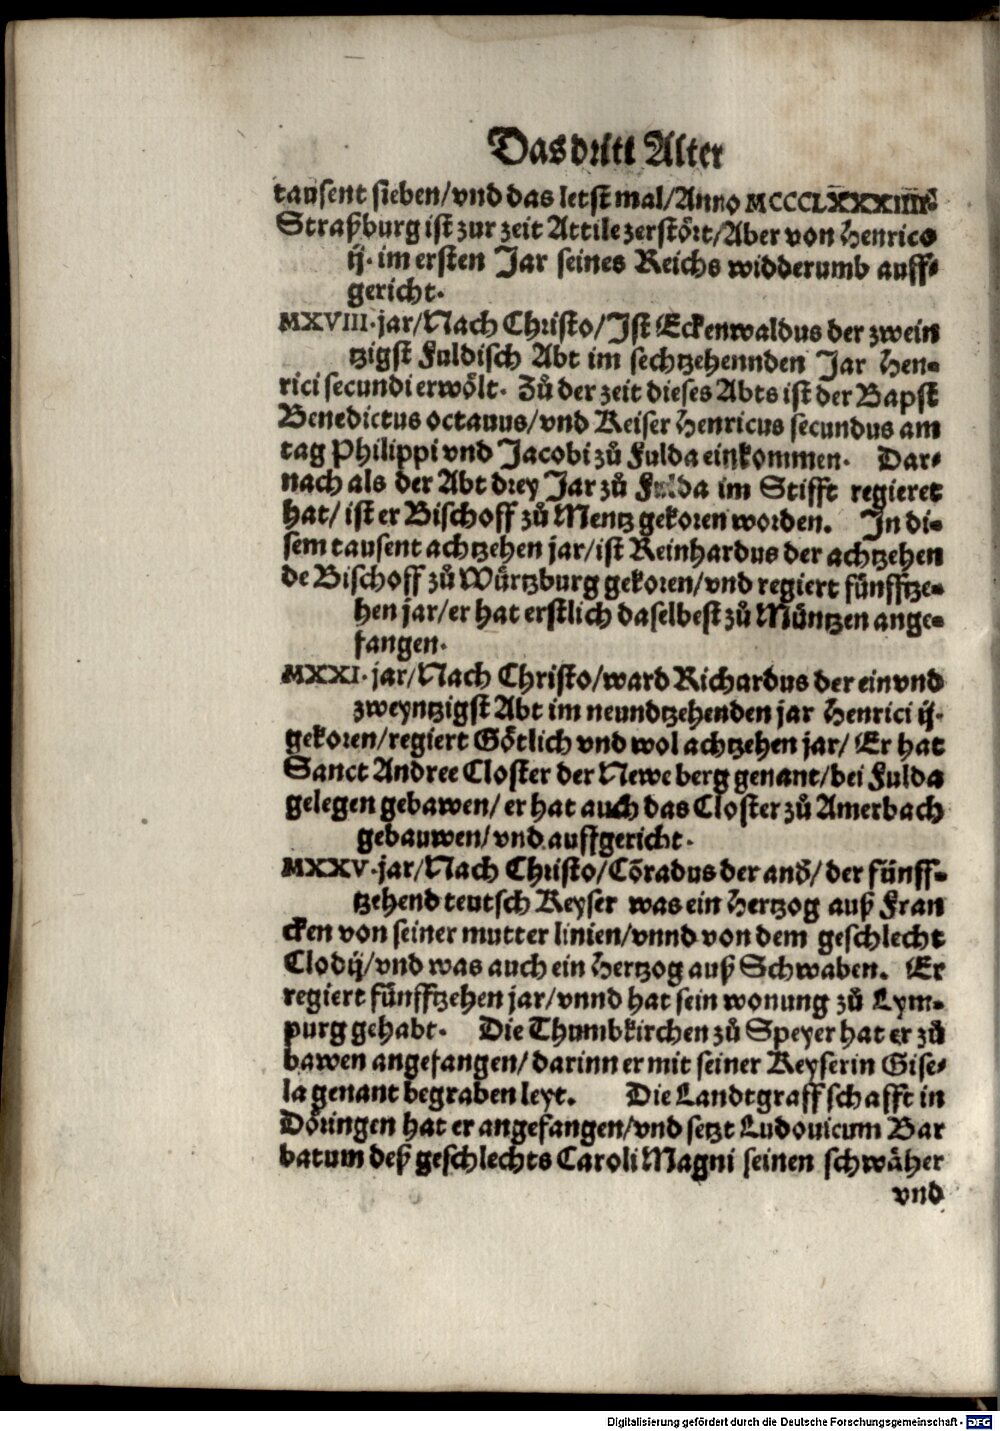 Das dritt Alter
tausent sieben/vnd das letst mal/Anno MCCCLXXXIIII.
Straßburg ist zur zeit Attile zerstört/Aber von Henrico
ij. im ersten Jar seines Reichs widderumb auff-
gericht.
MXVIII. jar/Nach Christo/Ist Eckenwaldus der zwein
tzigst Fuldisch Abt im sechtzehennden Jar Hen-
rici secundi erwölt. Zů der zeit dieses Abts ist der Bapst
Benedictus octauus/vnd Keiser Henricus secundus am
tag Philippi vnd Jacobi zů Fulda einkommen. Dar-
nach als der Abt drey Jar zů Fulda im Stifft regieret
hat/ ist er Bischoff zů Mentz gekoren worden. In di-
sem tausent achtzehen jar/ist Reinhardus der achtzehen
de Bischoff zů Würtzburg gekoren/vnd regiert fünfftze-
hen jar/er hat erstlich daselbest zů Müntzen ange-
fangen.
MXXI. jar/Nach Christo/ward Richardus der ein vnd
zweyntzigst Abt im neundtzehenden jar Henrici ij.
gekoren/regiert Götlich vnd wol achtzehen jar/ Er hat
Sanct Andree Closter der Newe berg genant/bei Fulda
gelegen gebawen/ er hat auch das Closter zů Amerbach
gebauwen/vnd auffgericht.
MXXV. jar/Nach Christo/Cōradus der and̄/ der fünff-
tzehend teutsch Keyser was ein Hertzog auß Fran
cken von seiner mutter linien/vnnd von dem geschlecht
Clodij/vnd was auch ein Hertzog auß Schwaben. Er
regiert fünfftzehen jar/vnnd hat sein wonung zů Lym-
purg gehabt. Die Thumbkirchen zů Speyer hat er zů
bawen angefangen/darinn er mit seiner Keyserin Gise-
la genant begraben leyt. Die Landtgraffschafft in
Döringen hat er angefangen/vnd setzt Ludouicum Bar
batum deß geschlechts Caroli Magni seinen schwäher
vnd
Digitalisierung gefördert durch die Deutsche Forschungsgemeinschaft - DFG